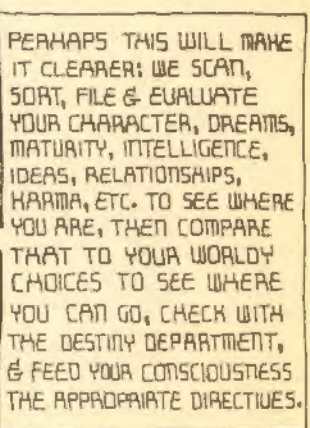 PERHAPS THIS WILL MAKE
IT CLEARER: WE SCAN,
SORT, FILE & EVALUATE
YOUR CHARACTER, DREAMS,
MATURITY, INTELLIGENCE,
IDEAS, RELATIONSHIPS,
KARMA, ETC. TO SEE WHERE
YOU ARE, THEN COMPARE
THAT TO YOUR WORLDY
CHOICES TO SEE WHERE
YOU CAN GO, CHECK WITH
THE DESTINY DEPARTMENT,
& FEED YOUR CONSCIOUSNESS
THE APPROPRIATE DIRECTIVES.